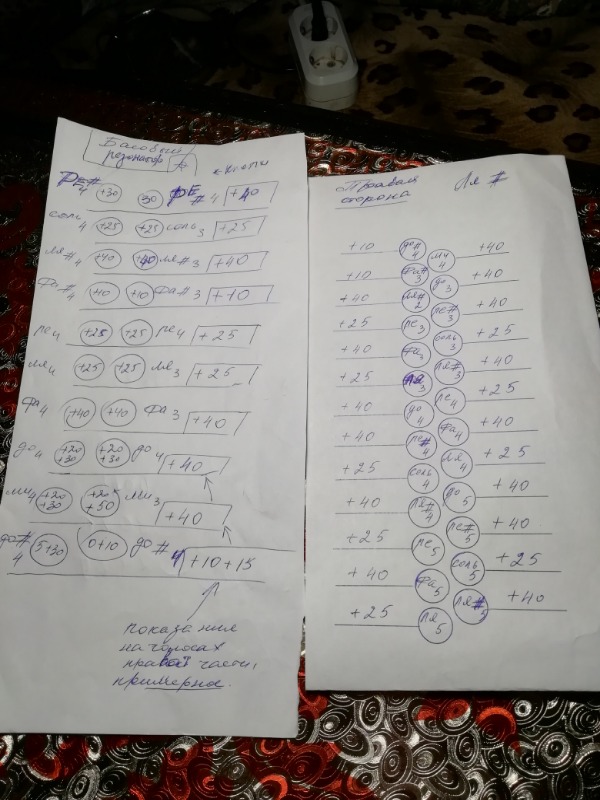 Басовый
резонатор
кнопки
РЕ# 4 +30 30 РЕ# 4 +40
соль 4 +25 +25 соль 3 +25
ля# 4 +40 +40 ля# 3 +40
Фа# 4 +10 +10 Фа# 3 +10
ре 4 +25 +25 ре 4 +25
ля 4 +25 +25 ля 3 +25
фа 4 +40 +40 фа 3 +40
до 4 +20 +30 +20 +30 до 4 +40
ми 4 +20 +30 +20 +50 ми 3 +40
до# 4 5+30 0+10 до# 4 +10+15
показания
на голосах
правой части,
примерное.
Правая Ля #
сторона
+10 до# 4 ми 4 +40
+10 Фа# 3 до 3 +40
+40 ля# 2 ре# 3 +40
+25 ре 3 соль 3 +25
+40 фа 3 ля# 3 +40
+25 ля 3 ре 4 +25
+40 до 4 фа 4 +40
+40 ре# 4 ля 4 +25
+25 соль 4 до 5 +40
+40 ля# 4 ре# 5 +40
+25 ре 5 соль 5 +25
+40 фа 5 ля# 5 +40
+25 ля 5